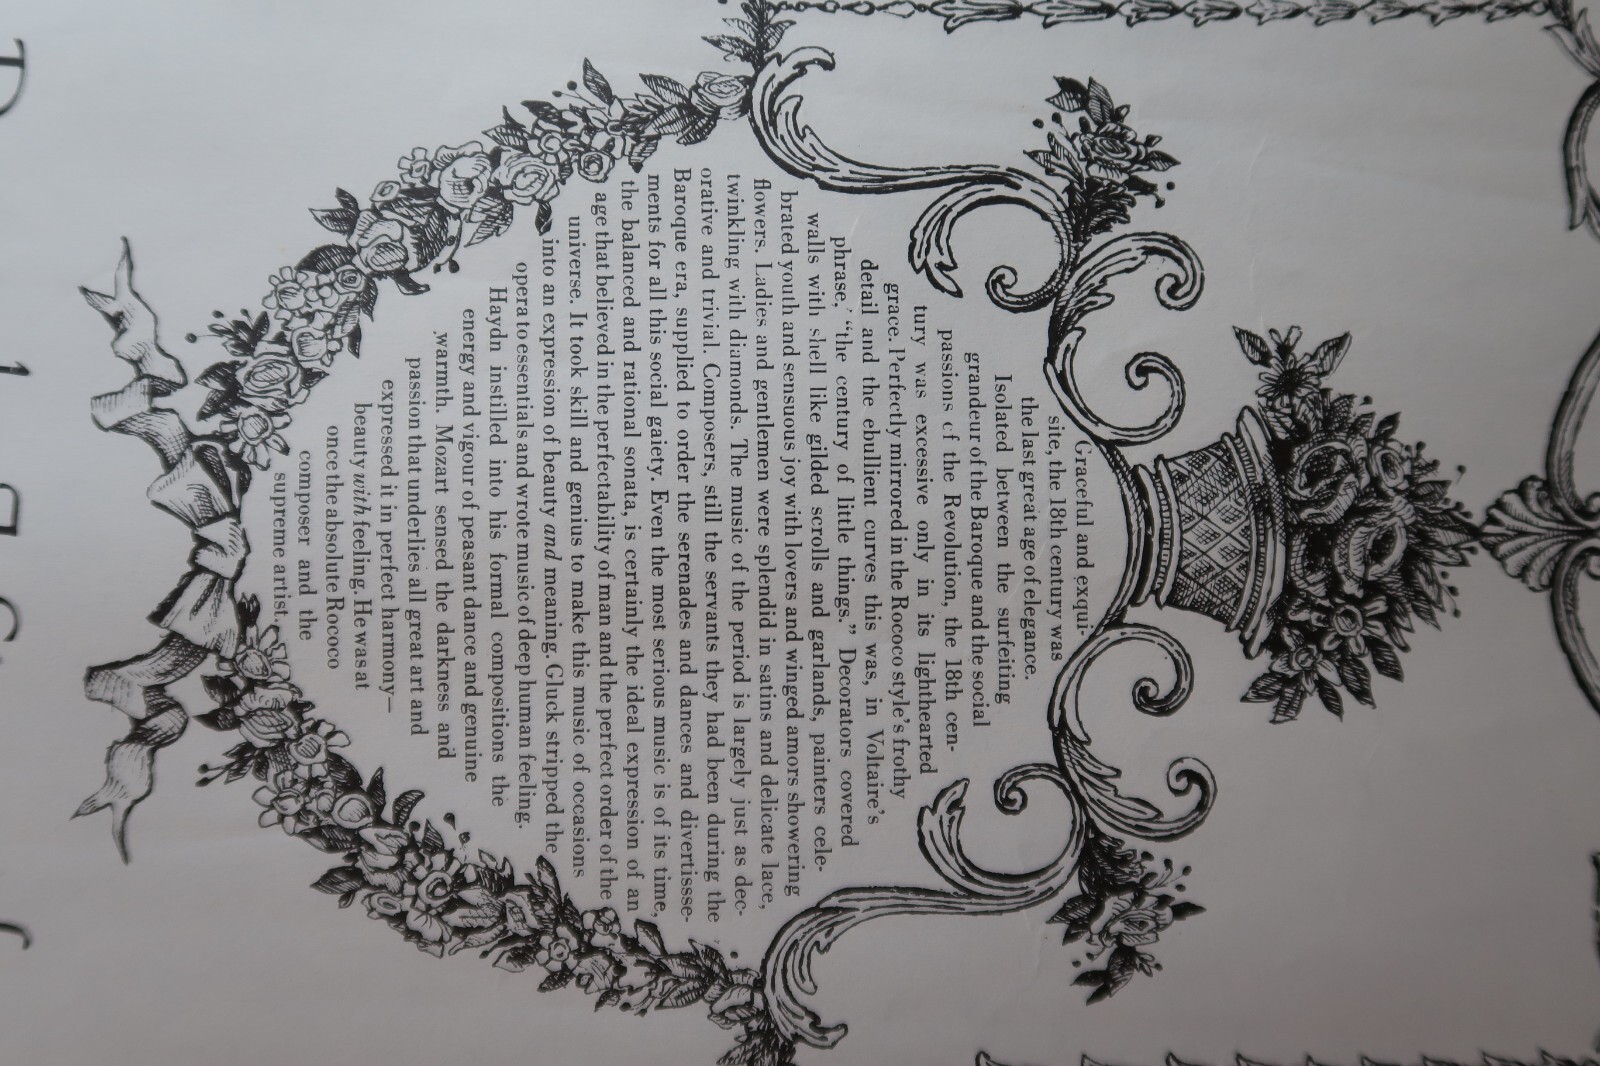 Graceful and exqui-
site, the 18th century was
the last great age of elegance.
Isolated between the surfeiting
grandeur of the Baroque and the social
passions of the Revolution, the 18th cen-
tury was excessive only in its lighthearted
grace. Perfectly mirrored in the Rococo style's frothy
detail and the ebullient curves this was, in Voltaire's
phrase, "the century of little things." Decorators covered
walls with shell like gilded scrolls and garlands, painters cele-
brated youth and sensuous joy with lovers and winged amors showering
flowers. Ladies and gentlemen were splendid in satins and delicate lace,
twinkling with diamonds. The music of the period is largely just as dec-
orative and trivial. Composers, still the servants they had been during the
Baroque era, supplied to order the serenades and dances and divertisse-
ments for all this social gaiety. Even the most serious music is of its time,
the balanced and rational sonata, is certainly the ideal expression of an
age that believed in the perfectability of man and the perfect order of the
universe. It took skill and genius to make this music of occasions
into an expression of beauty and meaning. Gluck stripped the
opera to essentials and wrote music of deep human feeling.
Haydn instilled into his formal compositions the
energy and vigour of peasant dance and genuine
warmth. Mozart sensed the darkness and
passion that underlies all great art and
expressed it in perfect harmony—
beauty with feeling. He was at
once the absolute Rococo
composer and the
supreme artist.